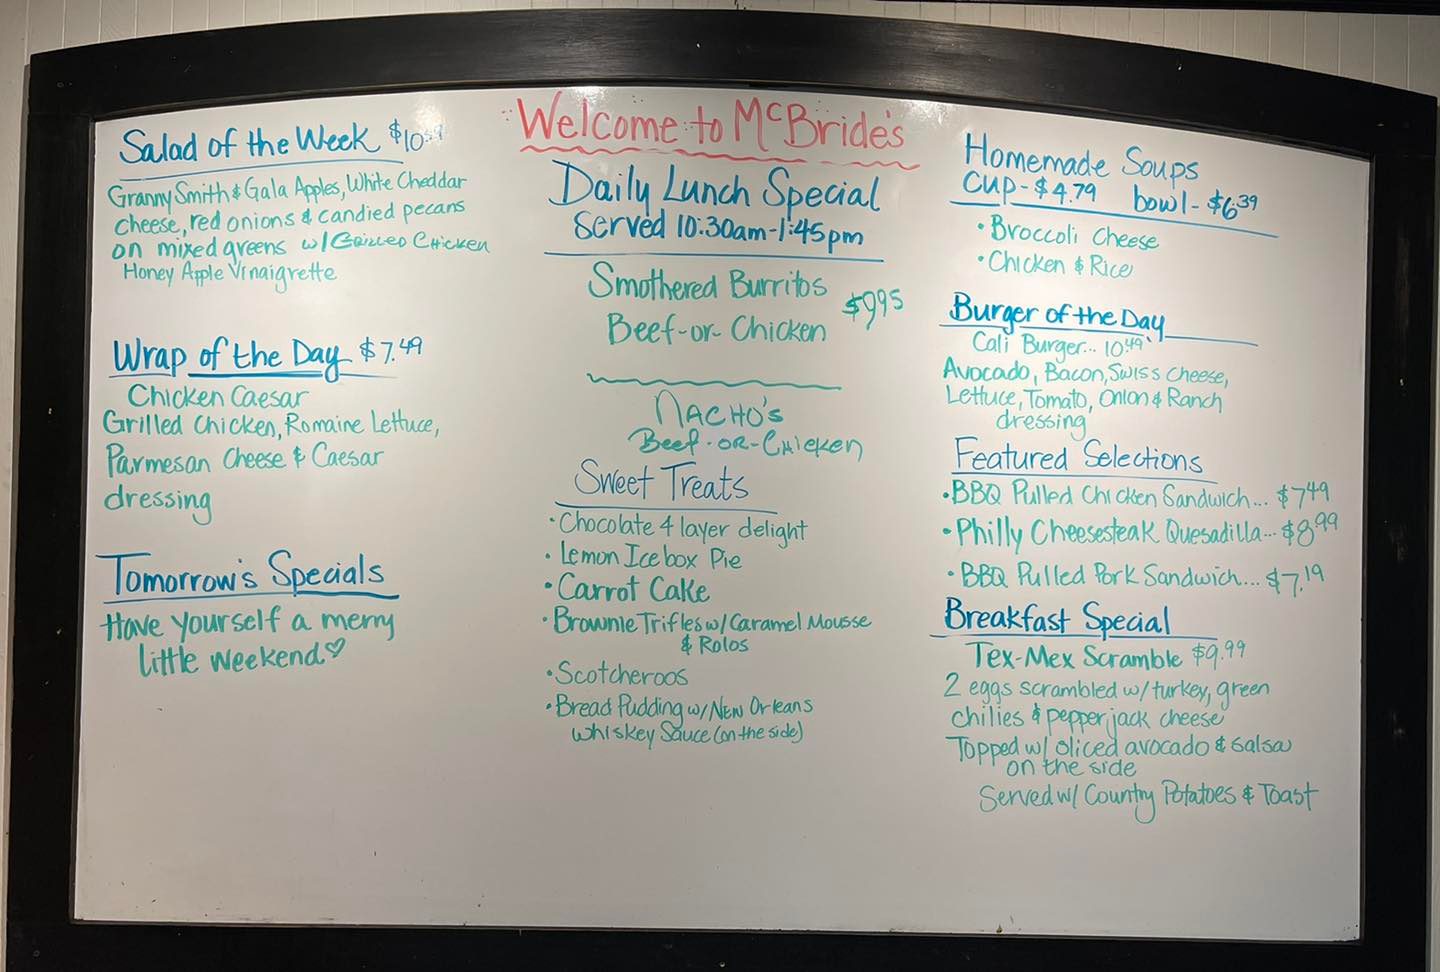 Welcome to McBride's
Salad of the Week $10.49
Granny Smith & Gala Apples, White Cheddar
cheese, red onions & candied pecans
on mixed greens w/ Grilled Chicken
Honey Apple Vinaigrette
Wrap of the Day $7.49
Chicken Caesar
Grilled Chicken, Romaine Lettuce,
Parmesan Cheese & Caesar
dressing
Tomorrow's Specials
Have yourself a merry
little weekend♡
Daily Lunch Special
Served 10:30am-1:45pm
Smothered Burritos
$9.95
Beef-or-Chicken
Nacho's
Beef-or-Chicken
Sweet Treats
• Chocolate 4 layer delight
• Lemon Icebox Pie
• Carrot Cake
• Brownie Trifles w/ Caramel Mousse
& Rolos
• Scotcheroos
• Bread Pudding w/ New Orleans
Whiskey Sauce (on the side)
Homemade Soups
Cup-$4.79 bowl-$6.39
• Broccoli Cheese
• Chicken & Rice
Burger of the Day
Cali Burger... 10.49
Avocado, Bacon, Swiss Cheese,
Lettuce, Tomato, Onion & Ranch
dressing
Featured Selections
• BBQ Pulled Chicken Sandwich... $7.49
• Philly Cheesesteak Quesadilla... $8.99
• BBQ Pulled Pork Sandwich.... $7.19
Breakfast Special
Tex-Mex Scramble $9.99
2 eggs scrambled w/ turkey, green
chilies & pepper jack cheese
Topped w/ sliced avocado & salsa
on the side
Served w/ Country Potatoes & Toast